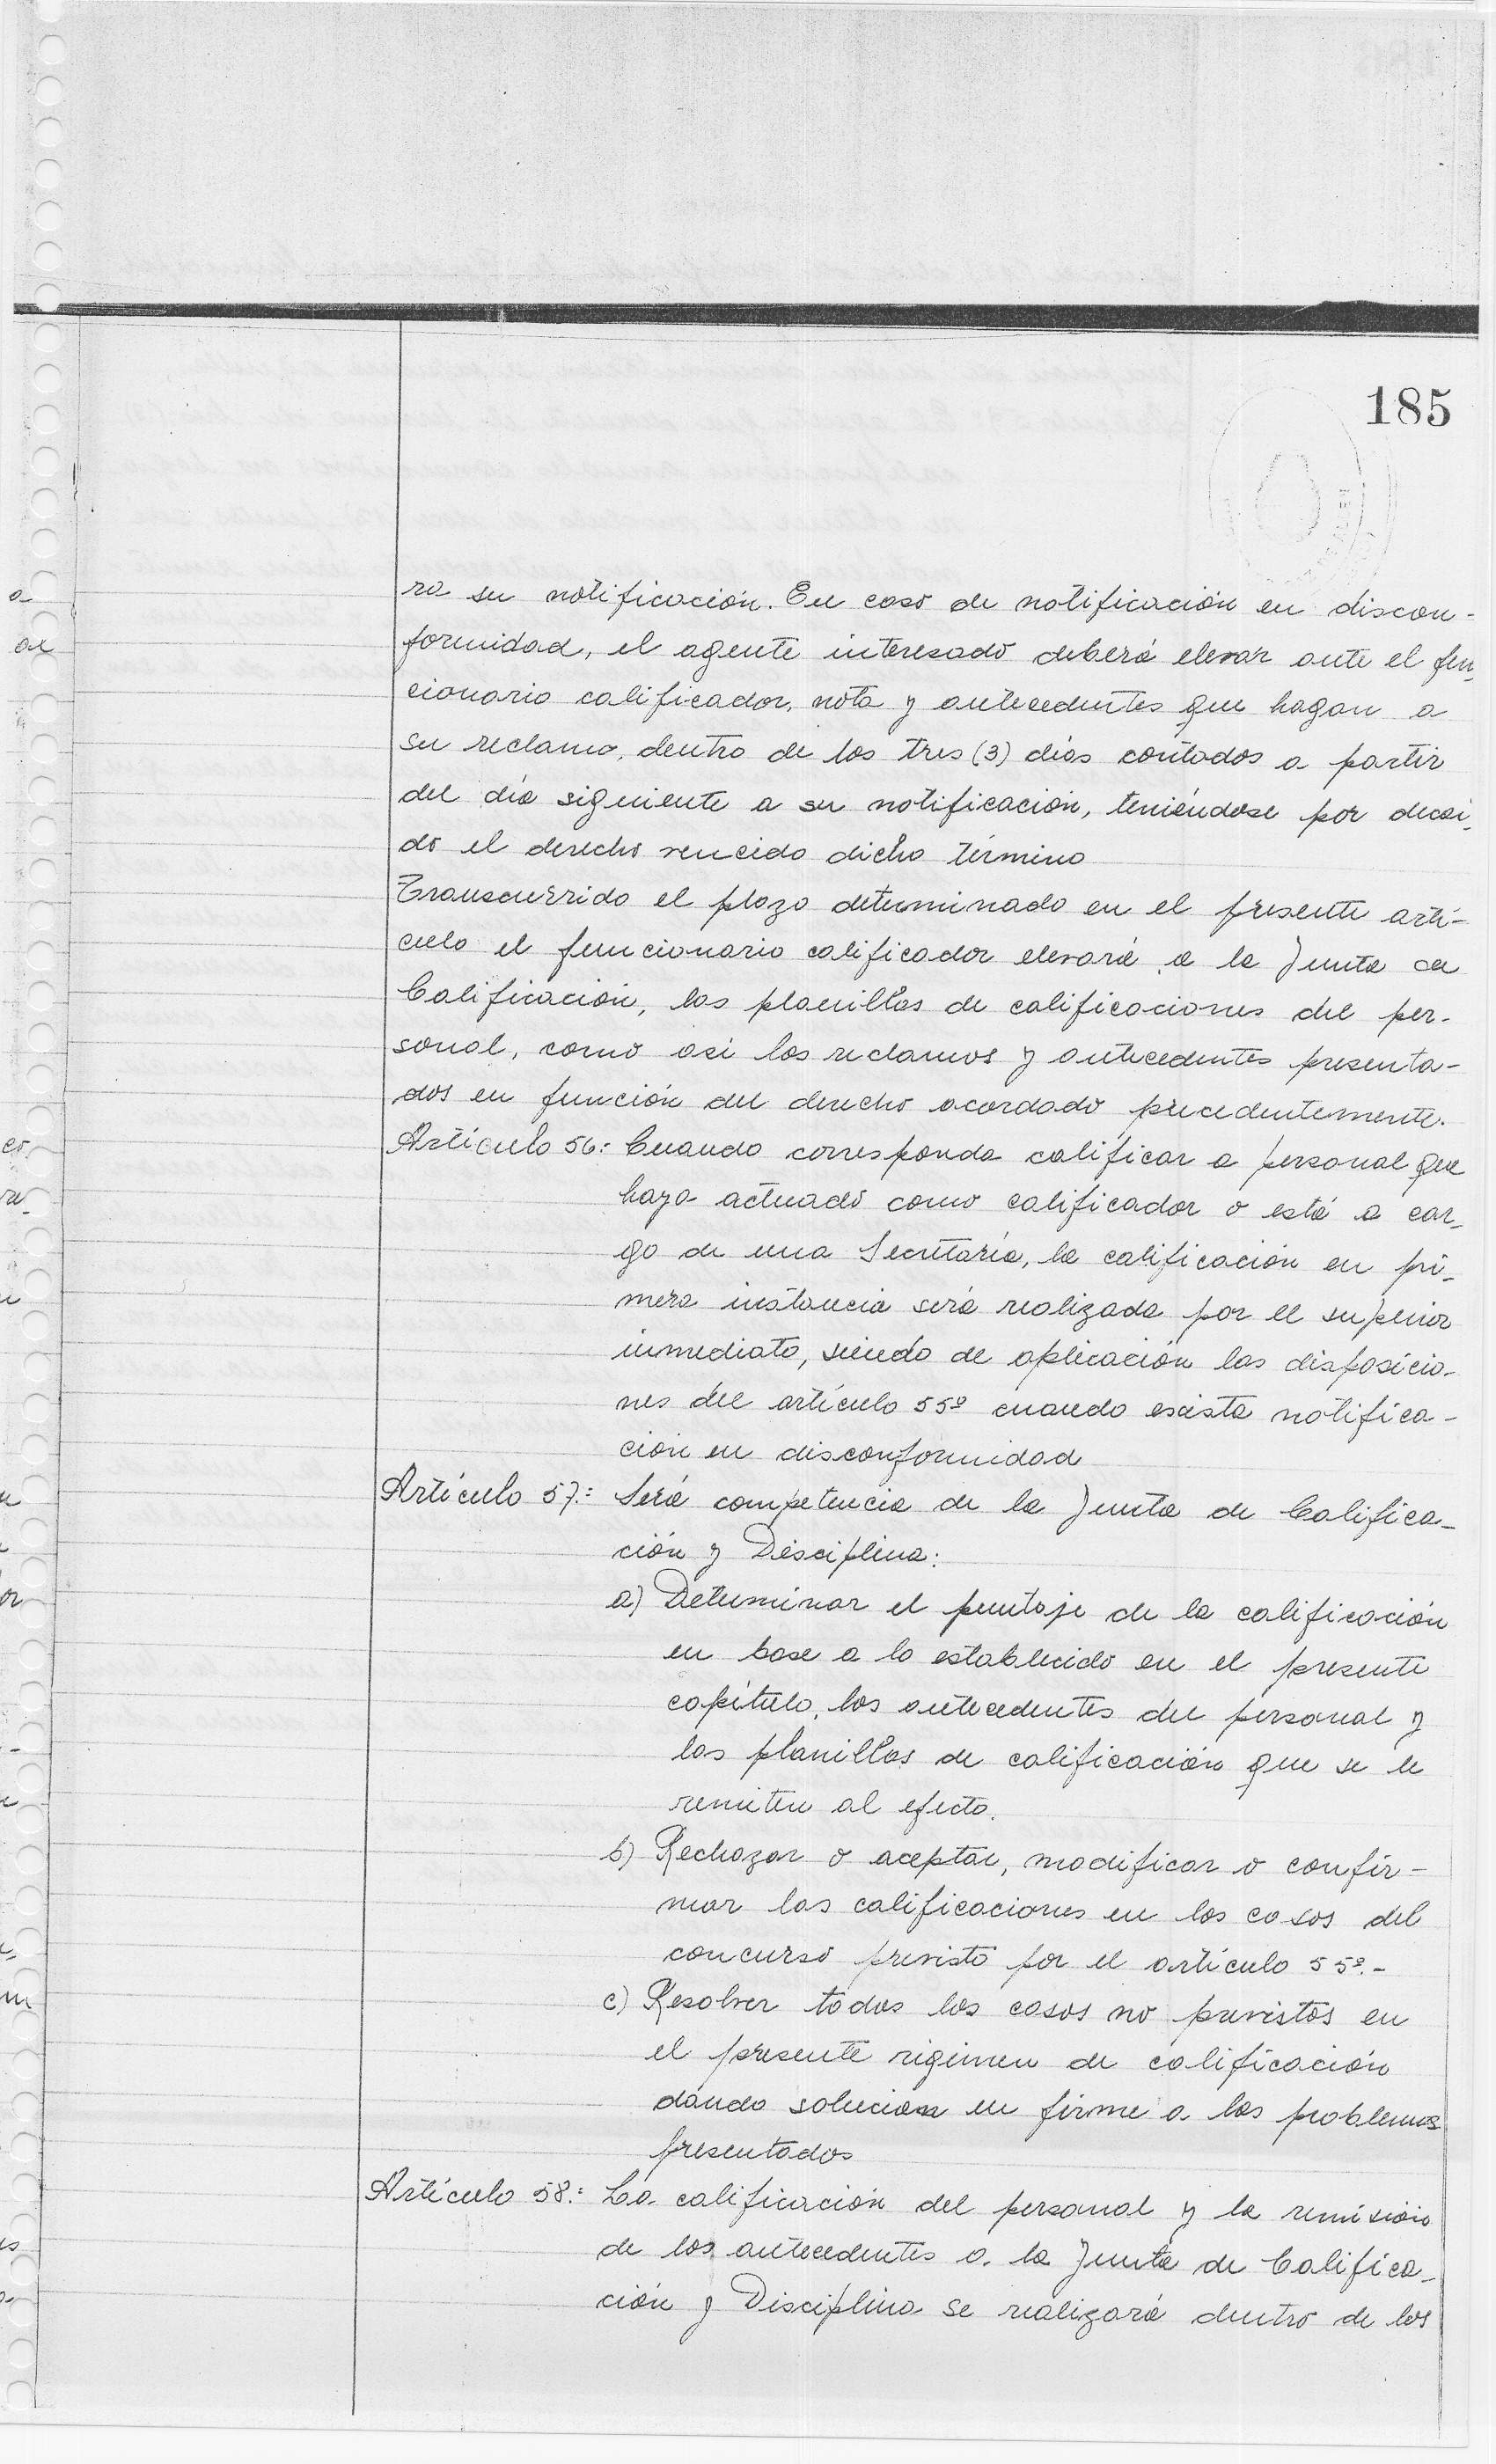 185
ra su notificación. En caso de notificación en discon-
formidad, el agente interesado deberá elevar ante el fun-
cionario calificador, nota y antecedentes que hagan a
su reclamo, dentro de los tres (3) días contados a partir
del día siguiente a su notificación, teniéndose por decai-
do el derecho vencido dicho término
Transcurrido el plazo determinado en el presente artí-
culo el funcionario calificador elevará a la Junta de
Calificación, las planillas de calificaciones del per-
sonal, como así los reclamos y antecedentes presenta-
dos en función del derecho acordado precedentemente.
Artículo 56: Cuando corresponda calificar a personal que
haya actuado como calificador o esté a car-
go de una Secretaría, la calificación en pri-
mera instancia será realizada por el superior
inmediato, siendo de aplicación las disposicio-
nes del artículo 55º cuando exista notifica-
ción en disconformidad
Artículo 57.: Será competencia de la Junta de Califica-
ción y Disciplina:
a) Determinar el puntaje de la calificación
en base a lo establecido en el presente
capítulo, los antecedentes del personal y
las planillas de calificación que se le
remiten al efecto.
b) Rechazar o aceptar, modificar o confir-
mar las calificaciones en los casos del
concurso previsto por el artículo 55º.-
c) Resolver todos los casos no previstos en
el presente régimen de calificación
dando solución en firme a los problemas
presentados
Artículo 58.: La calificación del personal y la remisión
de los antecedentes a la Junta de Califica-
ción y Disciplina se realizará dentro de los